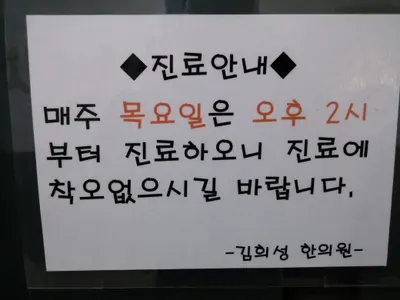 ◆진료안내◆
매주 목요일은 오후 2시
부터 진료하오니 진료에
착오없으시길 바랍니다.
-김희성 한의원-